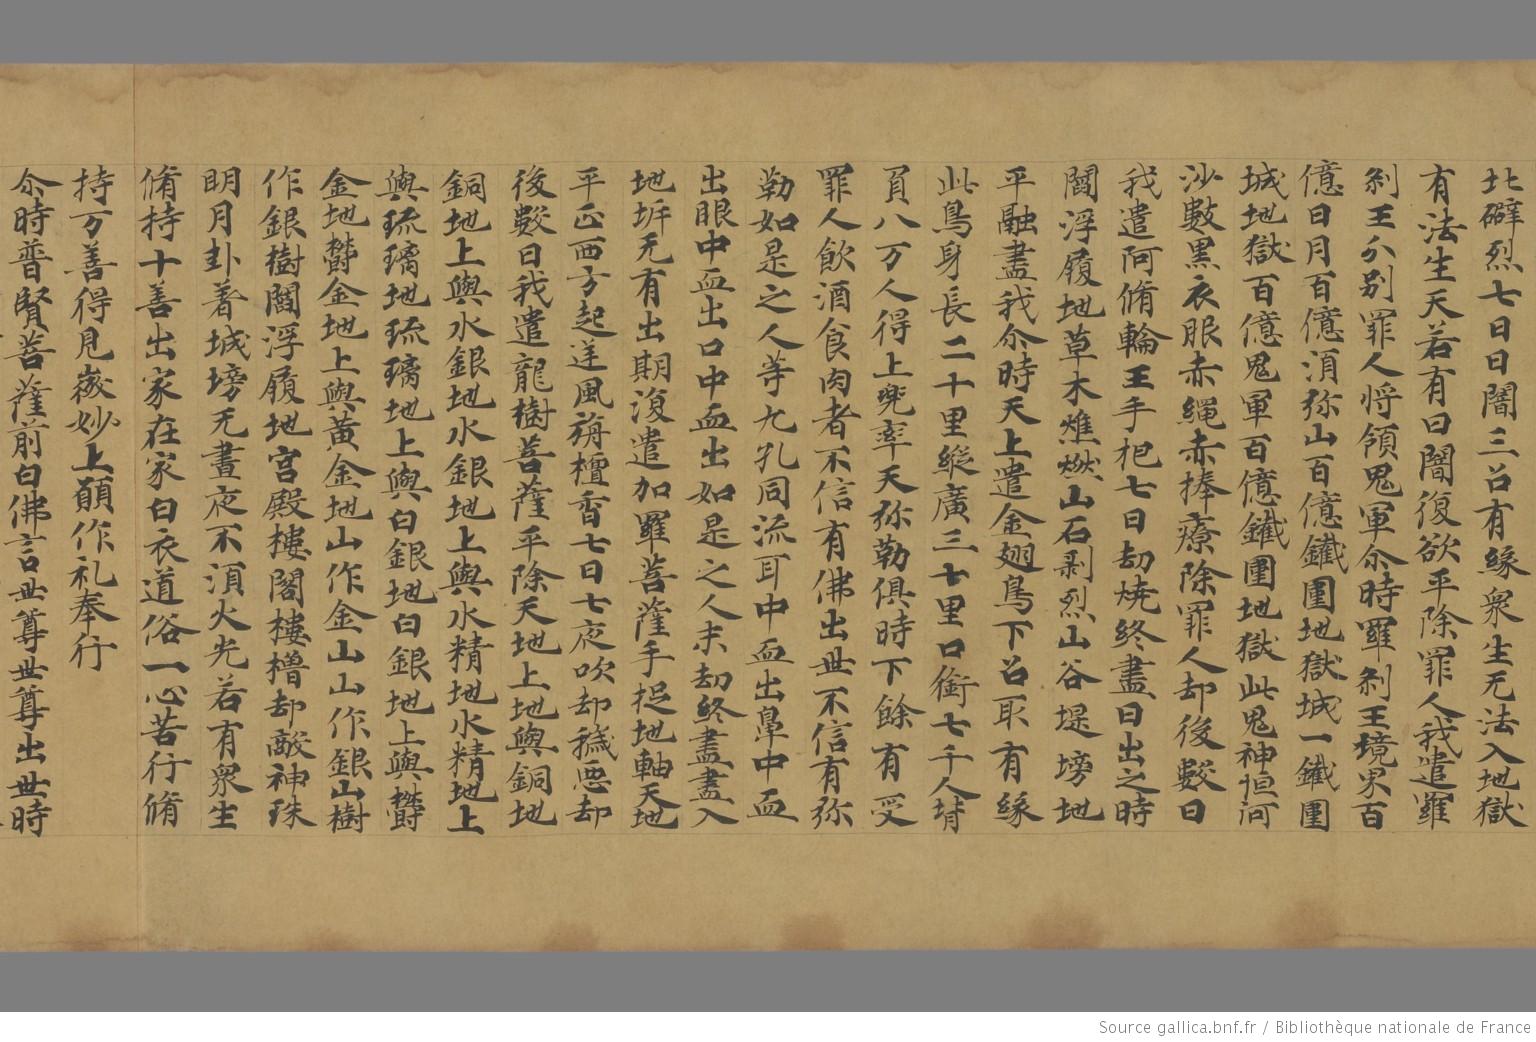 北礔烈七日日闇三召有緣衆生无法入地獄
有法生天若有日闇復欲平除罪人我遣羅
剎王分别罪人将領鬼軍尒時羅剎王境界百
億日月百億湏弥山百億鐵圍地獄城一鐵圍
城地獄百億鬼軍百億鐵圍地獄此鬼神恒河
沙數黑衣眼赤繩赤捧療除罪人却後數日
我遣阿脩輪王手杷七日劫燒終盡日出之時
閻浮履地草木燋燃山石剥烈山谷堤塝地
平融盡我尒時天上遣金翅鳥下召取有緣
此鳥身長二十里縱廣三七里口銜七千人背
負八万人得上兜率天弥勒俱時下餘有受
罪人飲酒食肉者不信有佛出世不信有弥
勒如是之人等九孔同流耳中血出鼻中血
出眼中血出口中血出如是之人末劫終盡盡入
地坼无有出期復遣加羅菩薩手捉地軸天地
平正西方起逆風旃檀香七日七夜吹却穢惡却
後數日我遣龍樹菩薩平除天地上地輿銅地
銅地上輿水銀地水銀地上輿水精地水精地上
輿琉璃地琉璃地上輿白銀地白銀地上輿欝
金地欝金地上輿黃金地山作金山山作銀山樹
作銀樹閻浮履地宮殿樓閣樓櫓却敵神珠
明月卦著城塝无晝夜不湏火光若有衆生
脩持十善出家在家白衣道俗一心苦行脩
持万善得見微妙上願作礼奉行
尒時普賢菩薩前白佛言世尊世尊出世時
Source gallica.bnf.fr / Bibliothèque nationale de France